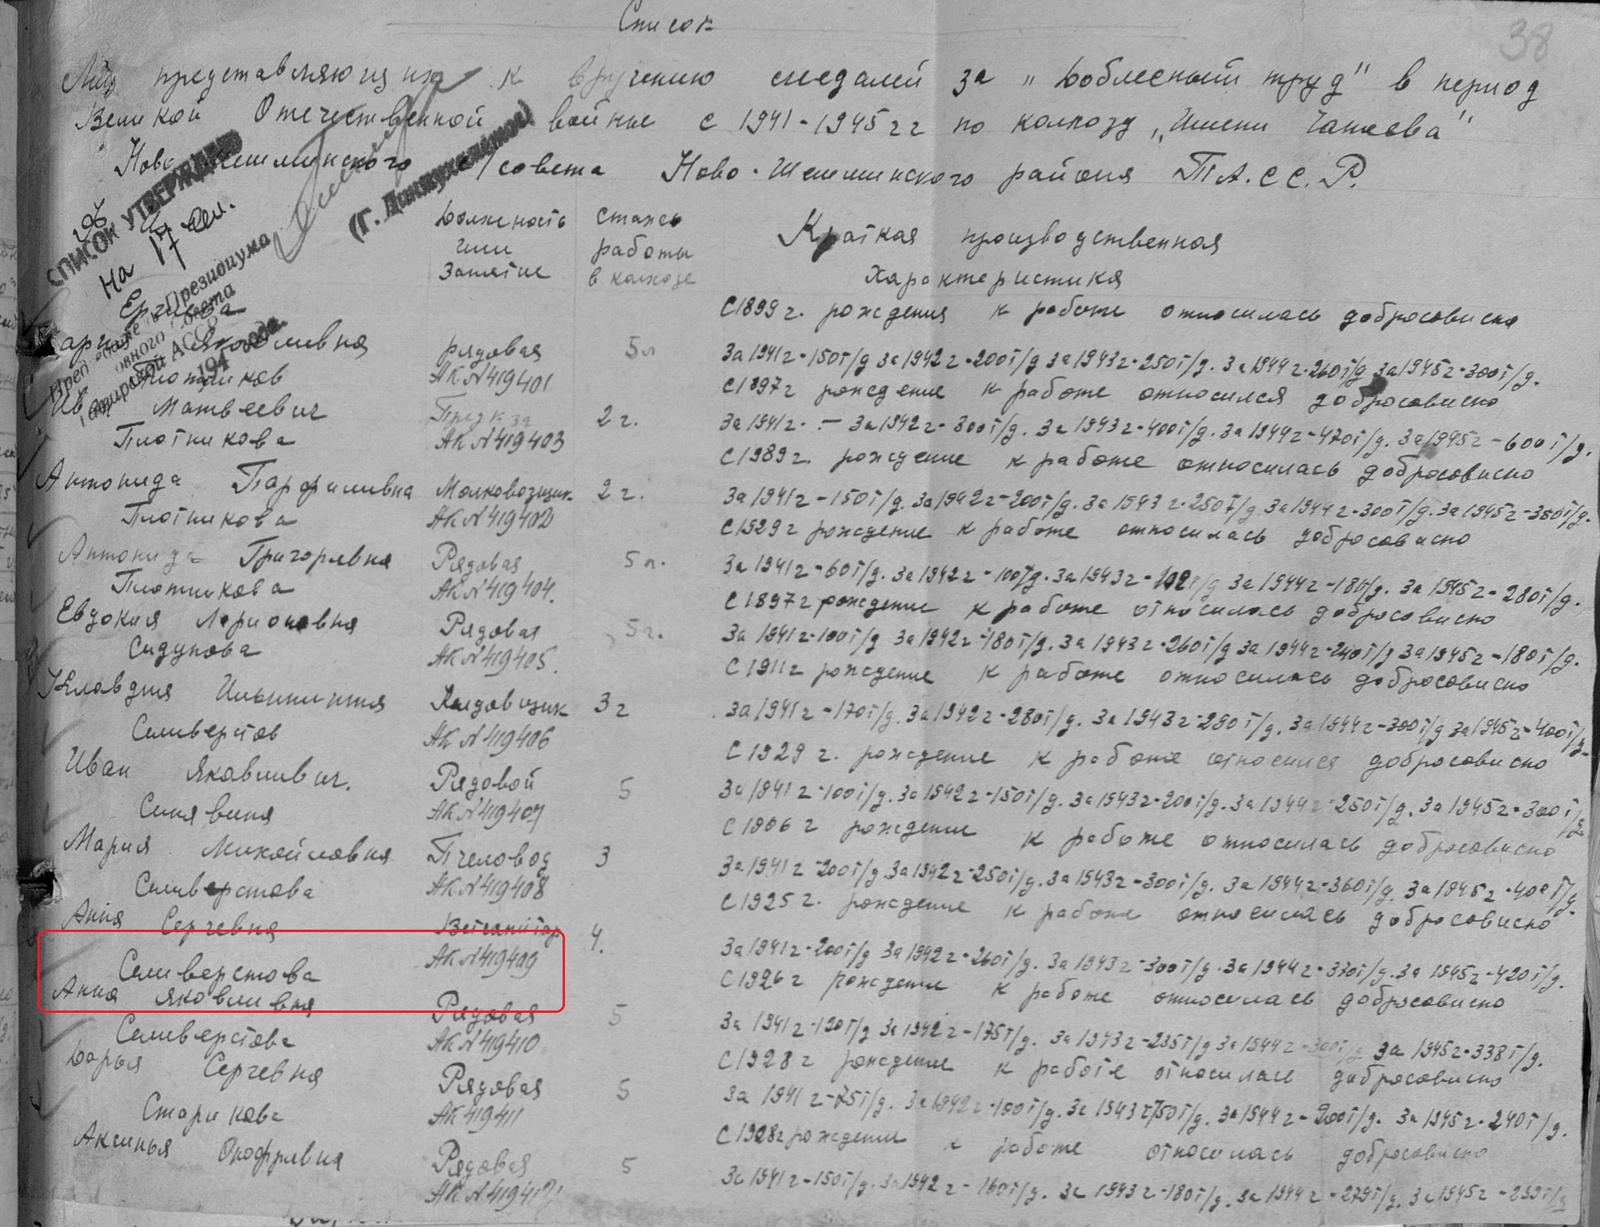 Список
38
Лиц представляющихся к вручению медалей за „Доблесный труд" в период
Великой Отечественной войны с 1941-1945 гг по колхозу „Имени Чапаева"
Ново-Шешминского с/совета Ново-Шешминского района ТА.С.С.Р.
СПИСОК УТВЕРЖДЕН
На 17 чел.
Президиума
АССР
194 года
Должность Стаж Краткая производственная
или работы
Занятие в колхозе Характеристика
С 1899 г. рождения к работе относилась добросовисно
Яковливна рядовая 5л За 1941г-150т/д За 1942г-200т/д За 1943г-250т/д. За 1944г-260т/д За 1945г-300т/д.
Плотников АК №419401 С 1897г рождение к работе относился добросовисно
Матвеевич 2г. За 1941г. — За 1942г-300т/д. За 1943г-400т/д. За 1944г-470т/д. За 1945г-600т/д.
Плотникова АК №419403 С 1989г. рождение к работе относилась добросовисно
Антонида Парфиливна Молковозщик 2г. За 1941г-150т/д. За 1942г-200т/д. За 1943г-250т/д За 1944г-300т/д. За 1945г-350т/д.
Плотникова АК №419402 С 1929г рождение к работе относилась добросовисно
Антонида Григорлвна Рядовая 5л. За 1941г-60т/д. За 1942г-100т/д. За 1943г За 1944г-180т/д. За 1945г-280т/д.
Плотникова АК №419404. С 1897г рождение к работе относилась добросовисно
Евдокия Ларионовна Рядовая 5г. За 1941г-100т/д За 1942г-180т/д. За 1943г-260т/д За 1944г-240т/д За 1945г-180т/д.
Сидунова АК №419405. С 1911г рождение к работе относилась добросовисно
Клавдия Кладовщик 3г За 1941г-170т/д. За 1942г-280т/д. За 1943г-290т/д. За 1944г-300т/д За 1945г-400т/д.
Селиверстов АК №419406 С 1929 г. рождение к работе относился добросовисно
Иван Яковливич. Рядовой 5 За 1941г-100т/д. За 1942г-150т/д. За 1943г-200т/д. За 1944г-250т/д. За 1945г-300т/д
Синявина АК №419407 С 1906г рождение к работе относилась добросовисно
Мария Михайловна Пчеловод 3 За 1941г-200т/д. За 1942г-250т/д. За 1943г-300т/д. За 1944г-360т/д. За 1945г-400т/д.
Селиверстова АК №419408 С 1925г. рождение к работе относилась добросовисно
Анна Сергевна Ветсанитар 4. За 1941г-200т/д За 1942г-260т/д. За 1943г-300т/д. За 1944г-370т/д. За 1945г-420т/д.
Селиверстова АК №419409 С 1926г рождение к работе относилась добросовисно
Анна Яковливна Рядовая 5 За 1941г-120т/д За 1942г-175т/д. За 1943г-235т/д За 1944г-300т/д За 1945г-338т/д.
Селиверстова АК №419410 С 1928г рождение к работе относилась добросовисно
Дарья Сергевна Рядовая 5 За 1941г-75т/д. За 1942г-100т/д. За 1943г-150т/д. За 1944г-200т/д. За 1945г-240т/д.
Старикова АК 419411 С 1928г рождение к работе относилась добросовисно
Аксинья Онофрлвна Рядовая 5 За 1941г-150т/д. За 1942г-160т/д. За 1943г-180т/д. За 1944г-279т/д. За 1945г-299т/д